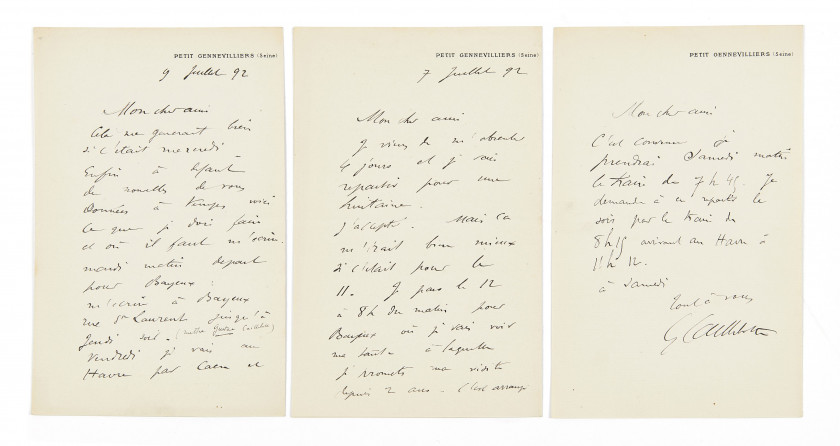 PETIT GENNEVILLIERS (Seine)
9 Juillet 92
Mon cher ami
Cela me generait bien
si c'était mercredi
Enfin à défaut
de nouvelles de vous
données à temps voici
ce que je dois faire
et où il faut m'écrire.
mardi matin depart
pour Bayeux
m'écrire à Bayeux
rue St Laurent jusqu'à
Jeudi soir. (
Vendredi je vais au
Havre par Caen et
PETIT GENNEVILLIERS (Seine)
7 Juillet 92
Mon cher ami
Je viens de m'absenter
4 jours et je vais
repartir pour une
huitaine.
J'accepte. Mais ça
m'irait bien mieux
si c'était pour le
11. Je pars le 12
à 8h du matin pour
Bayeux où je vais voir
ma tante à laquelle
je promets ma visite
depuis 2 ans. C'est arrangé
PETIT GENNEVILLIERS (Seine)
Mon cher ami
C'est convenu je
prendrai Samedi matin
le train de 7h45. Je
demande à repartir le
soir par le train de
8h15 arrivant au Havre à
11h12.
à Samedi
tout à vous
G Caillebotte